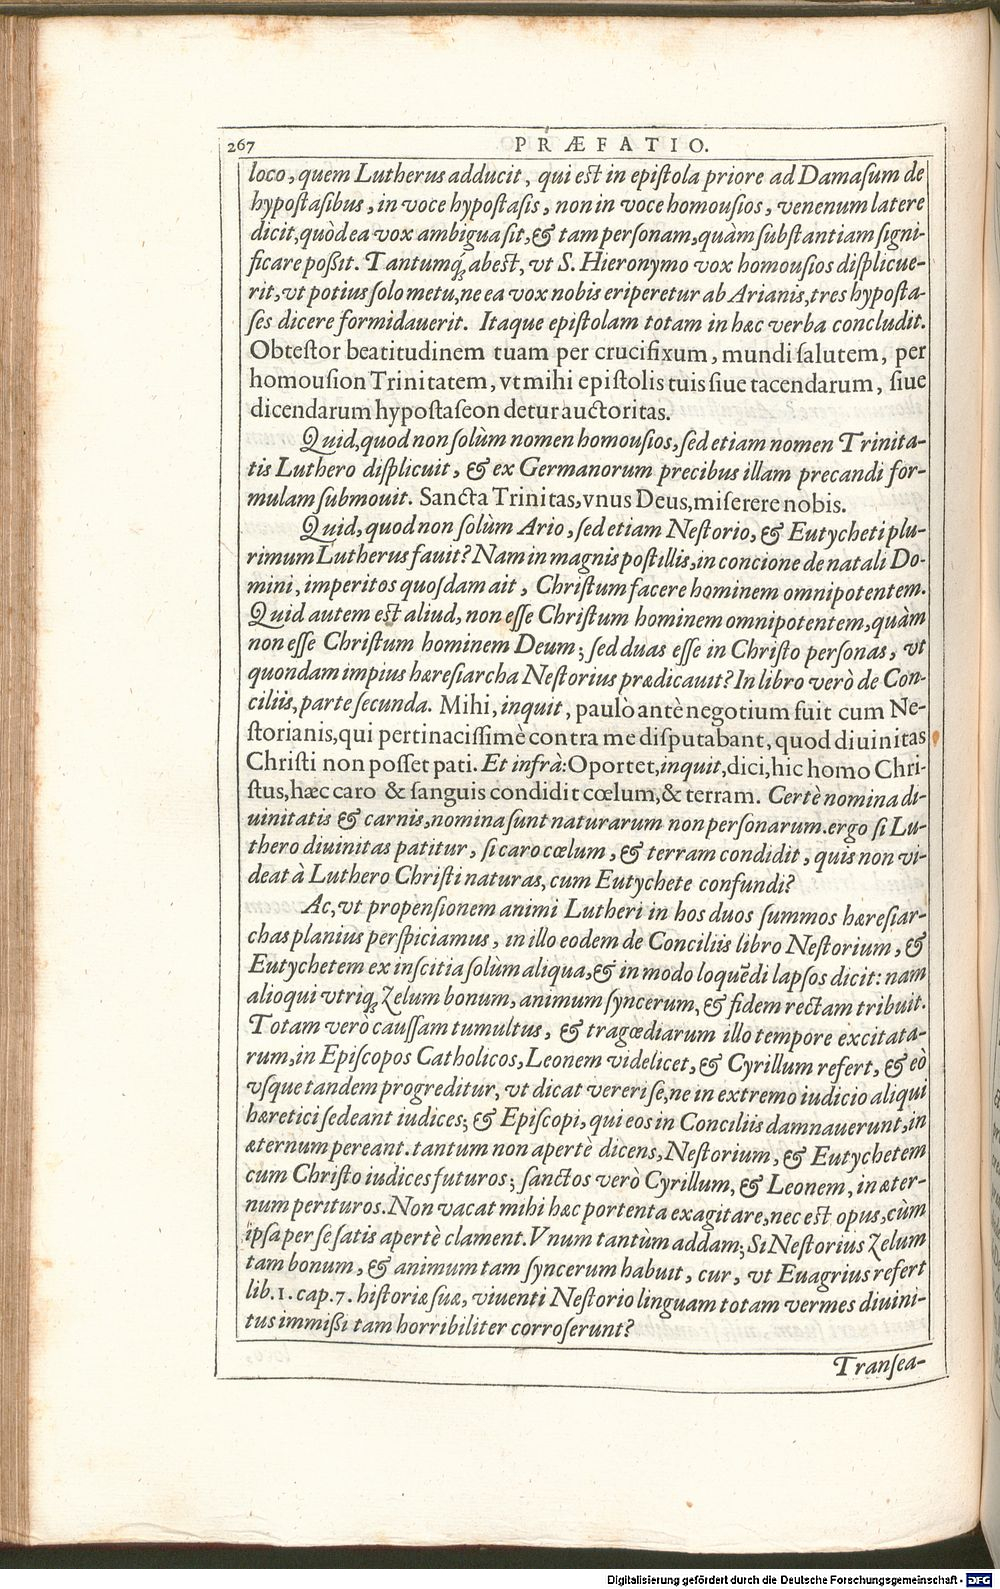 267 PRÆFATIO.
loco, quem Lutherus adducit, qui est in epistola priore ad Damasum de
hypostasibus, in voce hypostasis, non in voce homousios, venenum latere
dicit, quòd ea vox ambigua sit, & tam personam, quàm substantiam signi-
ficare poßit. Tantumq́; abest, vt S. Hieronymo vox homousios displicue-
rit, vt potius solo metu, ne ea vox nobis eriperetur ab Arianis, tres hyposta-
ses dicere formidauerit. Itaque epistolam totam in hæc verba concludit.
Obtestor beatitudinem tuam per crucifixum, mundi salutem, per
homousion Trinitatem, vt mihi epistolis tuis siue tacendarum, siue
dicendarum hypostaseon detur auctoritas.
Quid, quod non solùm nomen homousios, sed etiam nomen Trinita-
tis Luthero displicuit, & ex Germanorum precibus illam precandi for-
mulam submouit. Sancta Trinitas, vnus Deus, miserere nobis.
Quid, quod non solùm Ario, sed etiam Nestorio, & Eutycheti plu-
rimum Lutherus fauit? Nam in magnis postillis, in concione de natali Do-
mini, imperitos quosdam ait, Christum facere hominem omnipotentem.
Quid autem est aliud, non esse Christum hominem omnipotentem, quàm
non esse Christum hominem Deum; sed duas esse in Christo personas, vt
quondam impius hæresiarcha Nestorius prædicauit? In libro verò de Con-
ciliis, parte secunda. Mihi, inquit, paulò antè negotium fuit cum Ne-
storianis, qui pertinacissimè contra me disputabant, quod diuinitas
Christi non posset pati. Et infrà: Oportet, inquit, dici, hic homo Chri-
stus, hæc caro & sanguis condidit cœlum, & terram. Certè nomina di-
uinitatis & carnis, nomina sunt naturarum non personarum. ergo si Lu-
thero diuinitas patitur, si caro cœlum, & terram condidit, quis non vi-
deat à Luthero Christi naturas, cum Eutychete confundi?
Ac, vt propensionem animi Lutheri in hos duos summos hæresiar-
chas planius perspiciamus, in illo eodem de Conciliis libro Nestorium, &
Eutychetem ex inscitia solùm aliqua, & in modo loquēdi lapsos dicit: nam
alioqui vtriq; zelum bonum, animum syncerum, & fidem rectam tribuit.
Totam verò caussam tumultus, & tragœdiarum illo tempore excitata-
rum, in Episcopos Catholicos, Leonem videlicet, & Cyrillum refert, & eò
vsque tandem progreditur, vt dicat vereri se, ne in extremo iudicio aliqui
hæretici sedeant iudices; & Episcopi, qui eos in Conciliis damnauerunt, in
æternum pereant. tantum non apertè dicens, Nestorium, & Eutychetem
cum Christo iudices futuros; sanctos verò Cyrillum, & Leonem, in æter-
num perituros. Non vacat mihi hæc portenta exagitare, nec est opus, cùm
ipsa per se satis apertè clament. Vnum tantùm addam; Si Nestorius zelum
tam bonum, & animum tam syncerum habuit, cur, vt Euagrius refert
lib. 1. cap. 7. historiæ suæ, viuenti Nestorio linguam totam vermes diuini-
tus immißi tam horribiliter corroserunt?
Transea-
Digitalisierung gefördert durch die Deutsche Forschungsgemeinschaft - DFG